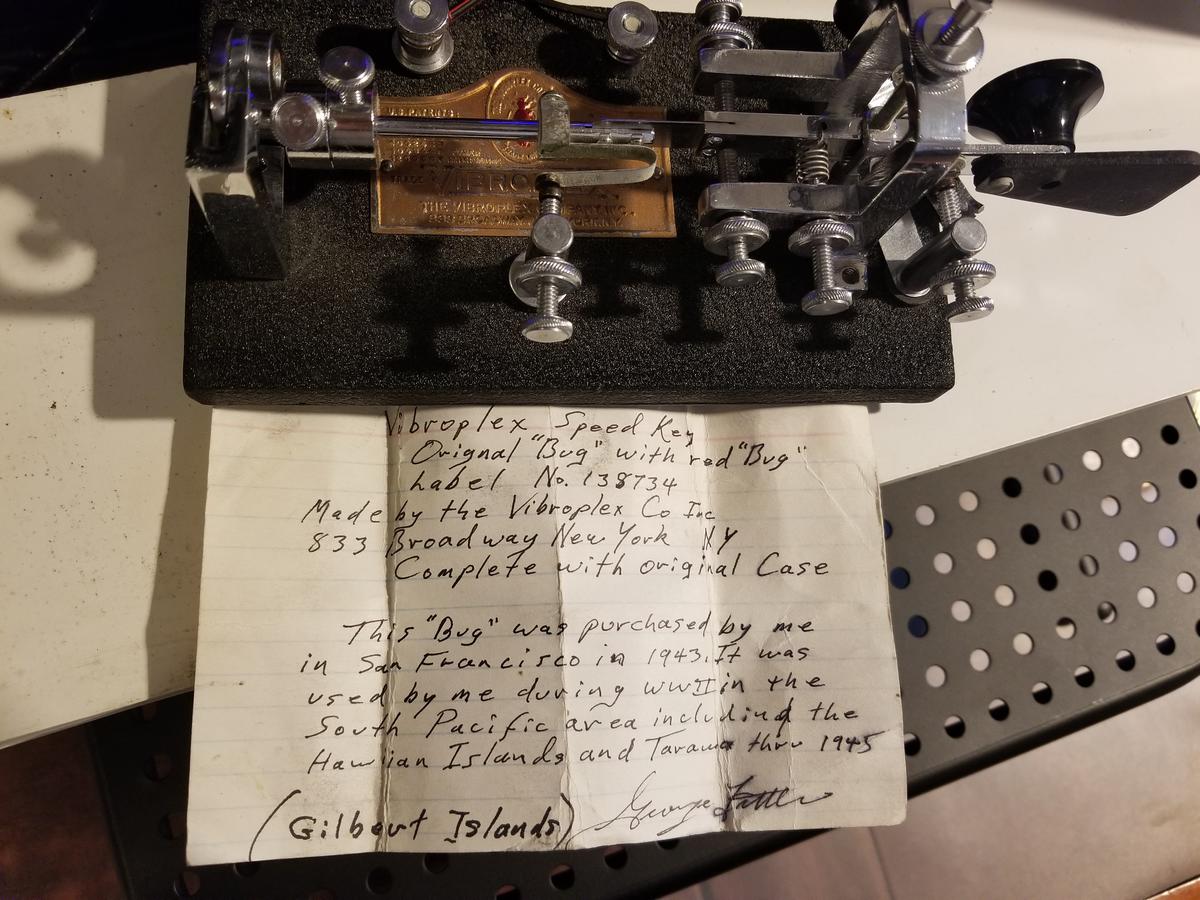 VIBROPLEX
THE VIBROPLEX COMPANY, INC.
833 BROADWAY
Vibroplex Speed Key
Orignal "Bug" with red "Bug"
Label No. 138734
Made by the Vibroplex Co Inc
833 Broadway New York NY
Complete with original Case
This "Bug" was purchased by me
in San Francisco in 1943. It was
used by me during WWII in the
South Pacific area including the
Hawiian Islands and Tarawa thru 1945
George
(Gilbert Islands)